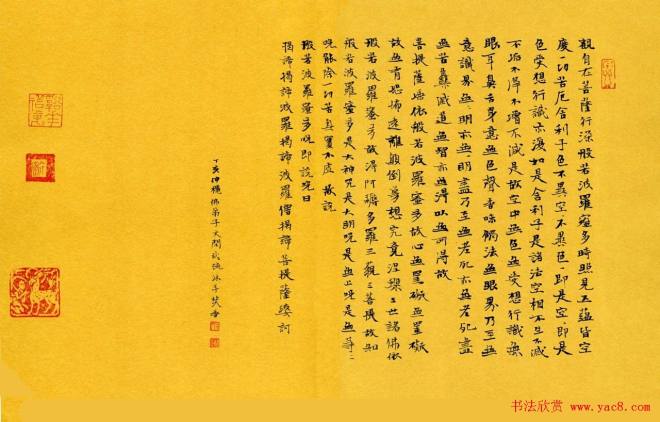 觀自在菩薩行深般若波羅蜜多時照見五蘊皆空
度一切苦厄舍利子色不異空不異色即是空即是
色受想行識亦復如是舍利子是諸法空相不生不滅
不垢不淨不增不減是故空中無色無受想行識無
眼耳鼻舌身意無色聲香味觸法無眼界乃至無
意識界無明亦無明盡乃至無老死亦無老死盡
無苦集滅道無智亦無得以無所得故
菩提薩埵依般若波羅蜜多故心無罣礙無罣礙
故無有恐怖遠離顛倒夢想究竟涅槃三世諸佛依
般若波羅蜜多故得阿耨多羅三藐三菩提故知
般若波羅蜜多是大神咒是大明咒是無上咒是無等〻
咒能除一切苦真實不虛故說
般若波羅蜜多咒即說咒曰
揭諦揭諦波羅揭諦波羅僧揭諦菩提薩婆訶
丁亥仲穐佛弟子沐手焚香
书法欣赏
www.yac8.com